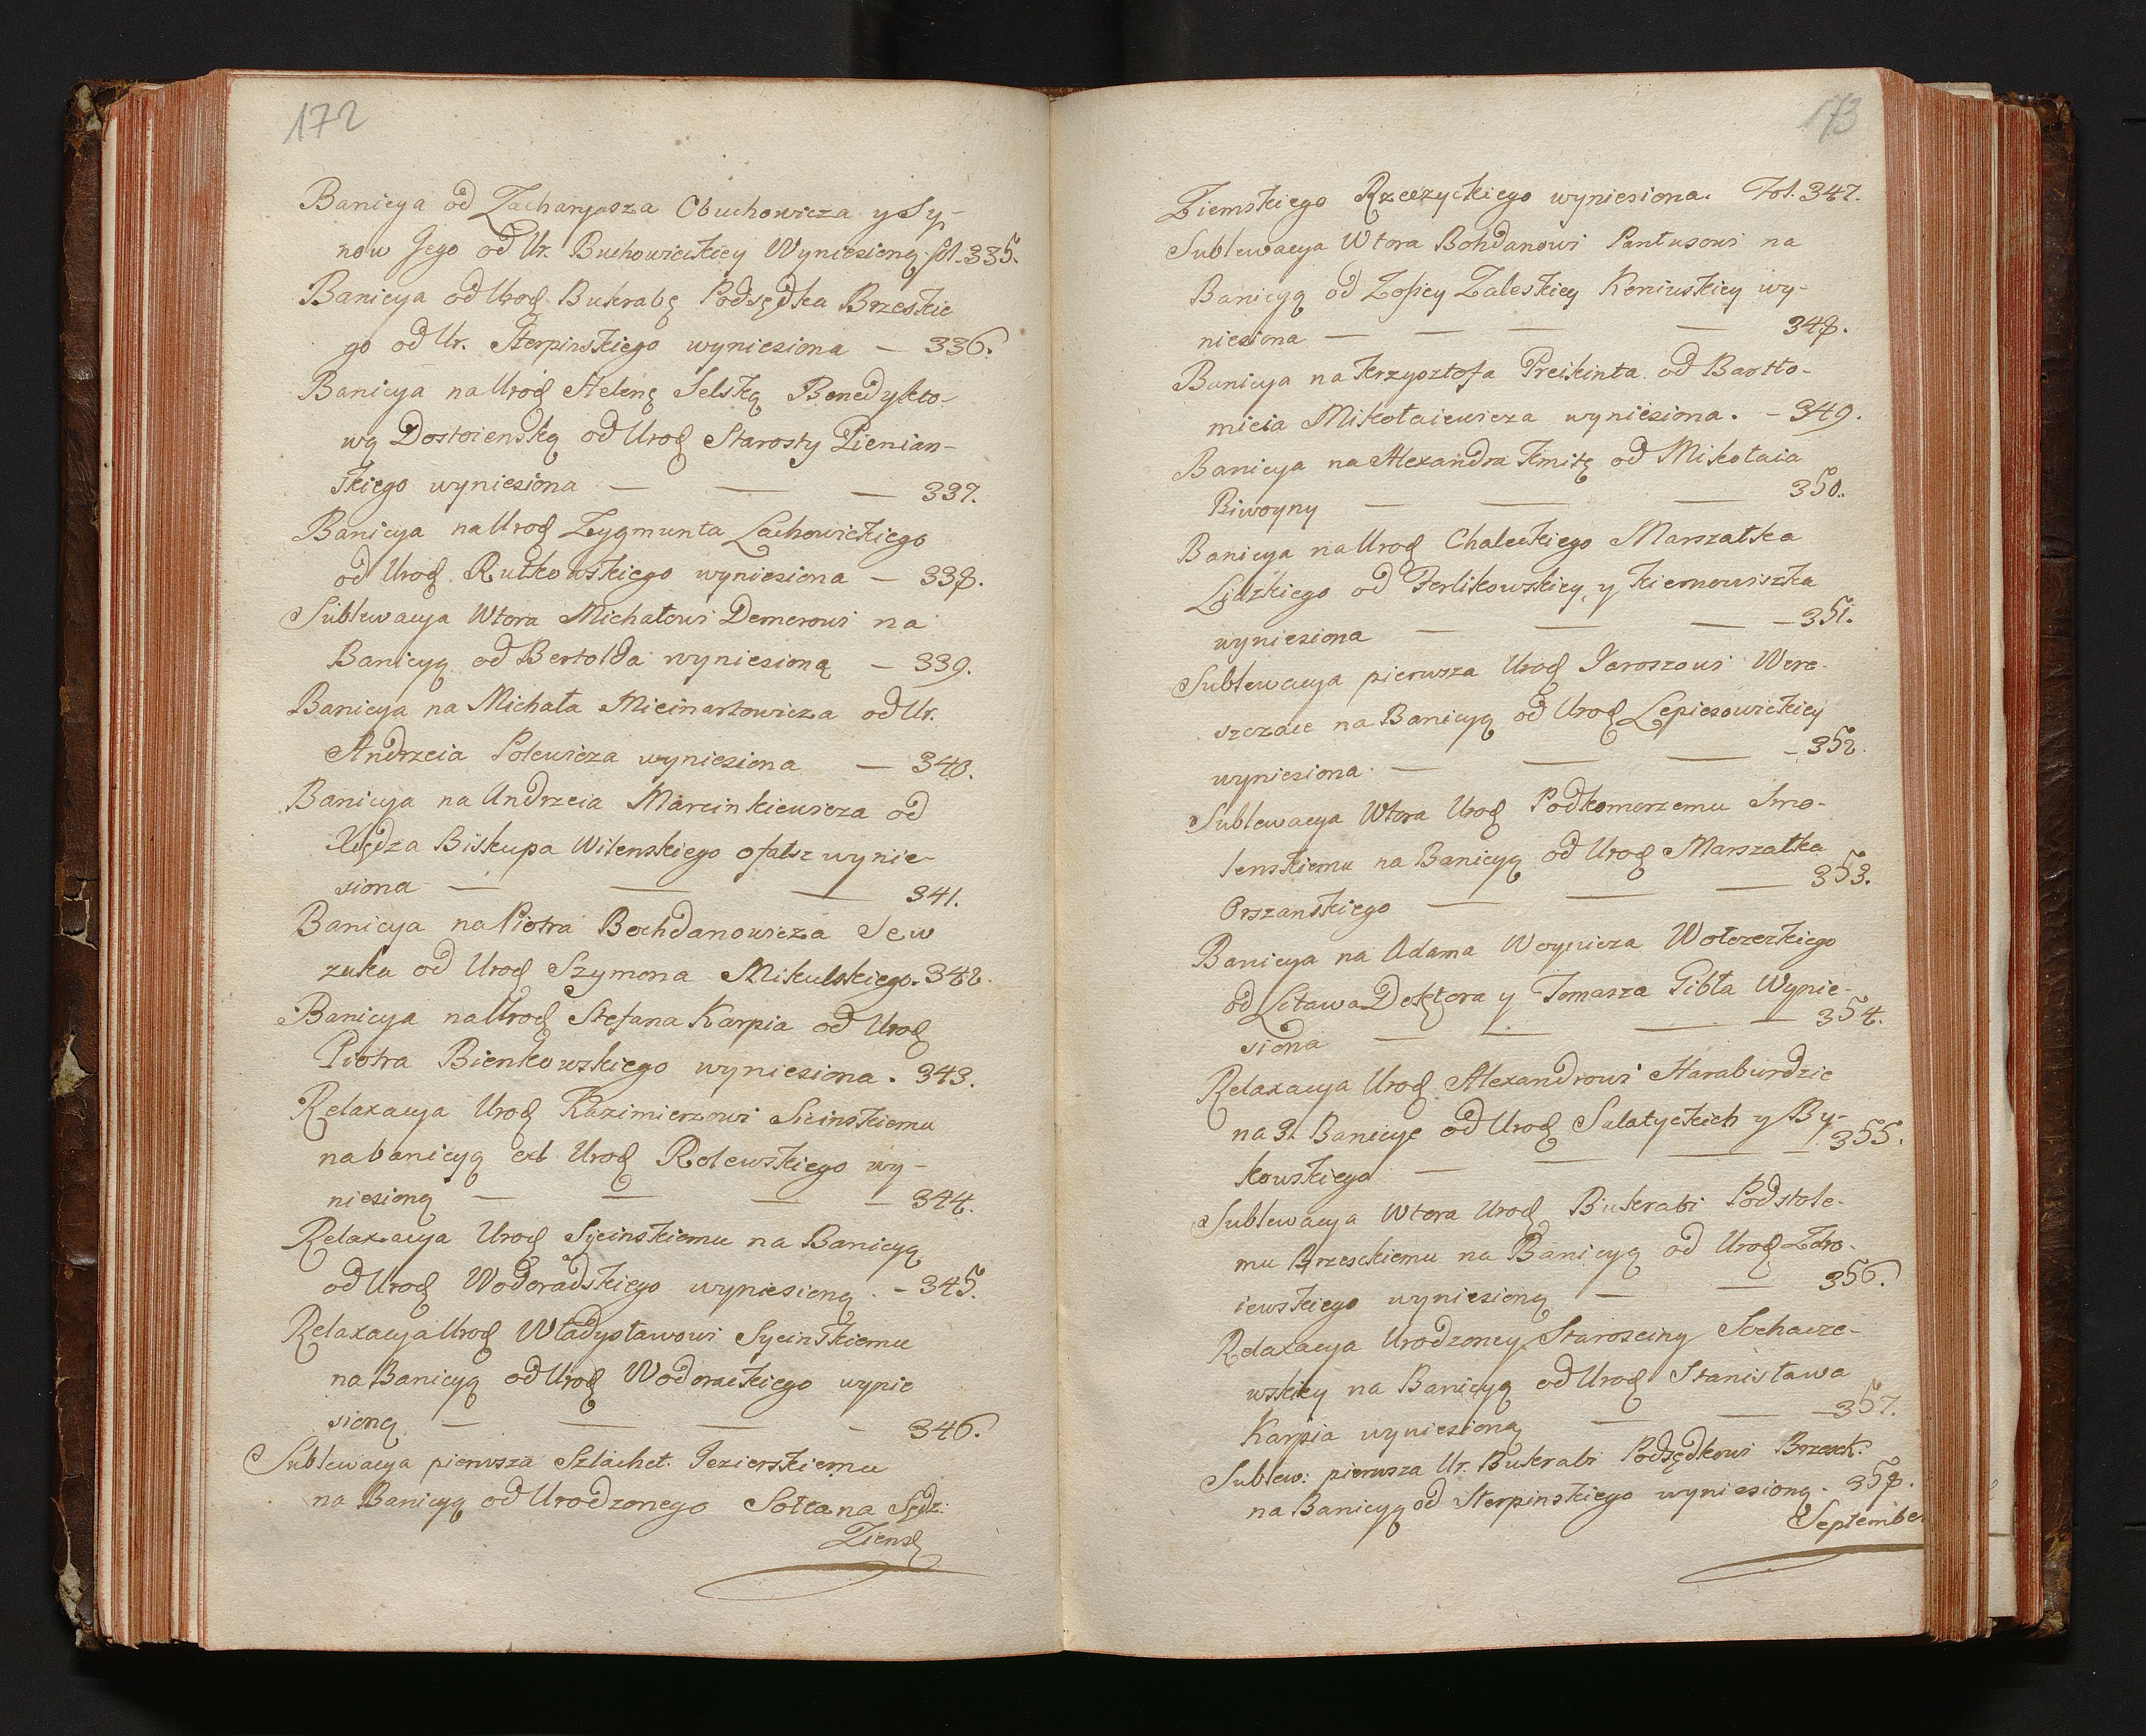 172
Banicya od Zacharyasza Obuchowicza y Sy-
now Jego od Ur. Buchowieckiey Wyniesiona fol. 335.
Banicya od Urod Bukrabę Podsędka Brzeskie
go od Ur. Sterpinskiego wyniesiona — 336.
Banicya na Urod Helenę Selską Benedykto-
wą Dostoienską od Urod Starosty Pienian-
skiego wyniesiona — — — 337.
Banicya na Urod Zygmunta Lachowickiego
od Urod Rutkowskiego wyniesiona — 338.
Sublewacya Wtora Michałowi Demerowi na
Banicyą od Bertolda wyniesioną — 339.
Banicya na Michała Mieinartowicza od Ur.
Andrzeia Polewicza wyniesiona — 340.
Banicya na Andrzeia Marcinkiewicza od
Xiędza Biskupa Wilenskiego o fałsz wynie-
siona — — — 341.
Banicya na Piotra Bochdanowicza Sew
zuka od Urod Szymona Mikulskiego. 342.
Banicya na Urod Stefana Karpia od Urod
Piotra Bienkowskiego wyniesiona. 343.
Relaxacya Urod Kazimierzowi Sicinskiemu
na banicyą ex Urod Rolewskiego wy-
niesioną — — — — 344.
Relaxacya Urod Syćinskiemu na Banicyą
od Urod Wodoradskiego wyniesioną. — 345.
Relaxacya Urod Władysławowi Syćinskiemu
na Banicyą od Urod Wodorackiego wynie
sioną — — — — 346.
Sublewacya pierwsza Szlachet. Jezierskiemu
na Banicyą od Urodzonego Sołtana Sędz:
Ziems
173
Ziemskiego Rzeczyckiego wyniesiona. Fol. 347.
Sublewacya Wtora Bohdanowi Pantusowi na
Banicyą od Zofiey Zaleskiey Keniuskiey wy-
niesiona — — — — 348.
Banicya na Krzysztofa Preikinta od Bartło-
mieia Mikołaiewicza wyniesiona. — 349.
Banicya na Alexandra Kmitę od Mikołaia
Biwoyny — — — 350.
Banicya na Urod Chaleckiego Marszałka
Lidzkiego od Ferlikowskiey y Kiernowiszka
wyniesiona — — — — 351.
Sublewacya pierwsza Urod Jaroszowi Were-
szczace na Banicyą od Urod Lepiesowickiey
wyniesiona — — — — 352.
Sublewacya Wtora Urod Podkomorzemu Smo-
lenskiemu na Banicyą od Urod Marszałka
Orszanskiego — — — 353.
Banicya na Adama Woynicza Wołczeckiego
od Litawa Doktora y Tomasza Gibla Wynie-
siona — — — — 354.
Relaxacya Urod Alexandrowi Haraburdzie
na 3 Banicye od Urod Sulatyckich y By-
kowskiego — — — — 355.
Sublewacya Wtora Urod Bukrabi Podstole-
mu Brzesckiemu na Banicyą od Urod Zdro-
iewskiego wyniesioną — — 356.
Relaxacya Urodzoney Starosciny Sochacze-
wskiey na Banicyą od Urod Stanisława
Karpia wyniesioną — — — 357.
Sublew: pierwsza Ur. Bukrabi Podsędkowi Brzesck:
na Banicyą od Sterpinskiego wyniesioną. 358.
September